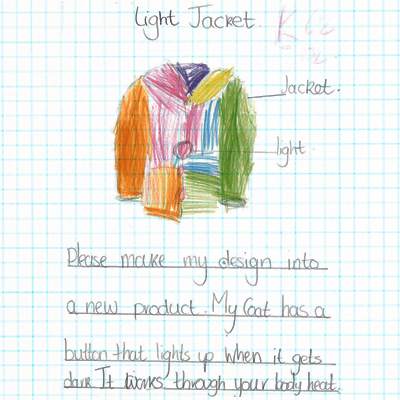 Light Jacket.
Jacket.
light
Please make my design into
a new product. My Coat has a
button that lights up when it gets
dark It works through your body heat.